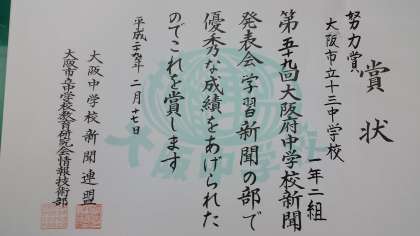 賞状
努力賞
大阪市立十三中学校
一年二組
第五十九回大阪府中学校新聞
発表会学習新聞の部で
優秀な成績をあげられた
のでこれを賞します
平成二十九年二月十七日
大阪中学校新聞連盟
大阪市立中学校教育研究会情報技術部